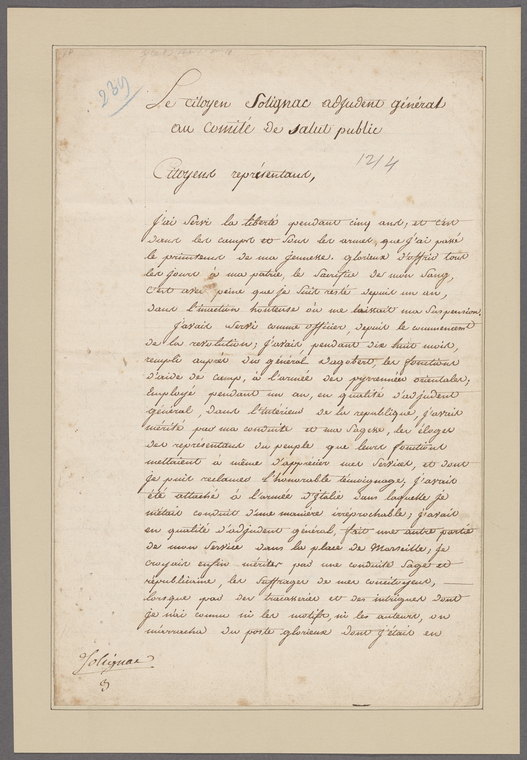 239
Le citoyen Solignac adjudent général
au Comité de salut public
12/4
Citoyens représentans,
J'ai servi la liberté pendant cinq ans, et c'est
dans les camps et sous les armes, que j'ai passé
le printems de ma jeunesse. glorieux d'offrir tous
les jours à ma patrie, le sacrifice de mon sang,
c'est avec peine que je suis resté depuis un an,
dans l'inaction honteuse où me laissait ma suspension.
J'avais servi comme officier, depuis le commencement
de la révolution; j'avais pendant dix huit mois,
rempli auprès du général Dagobert, les fonctions
d'aide de camp, à l'armée des pyrennées orientales;
employé pendant un an, en qualité d'adjudent
général, dans l'intérieur de la république, j'avais
mérité par ma conduite et ma sagesse, les éloges
des représentans du peuple que leurs fonctions
mettaient à même d'apprécier mes services, et dont
je puis reclamer l'honorable témoignage; j'avais
été attaché à l'armée d'italie dans laquelle je
m'étais conduit d'une manière irréprochable; j'avais
en qualité d'adjudent général, fait une autre partie
de mon service dans la place de Marseille; je
croyais enfin mériter par une conduite sage et
républicaine, les suffrages de mes concitoyens,
lorsque par des tracasseries et des intrigues dont
je n'ai connu ni les motifs, ni les auteurs, on
m'arracha du poste glorieux dont j'étais en
Solignac